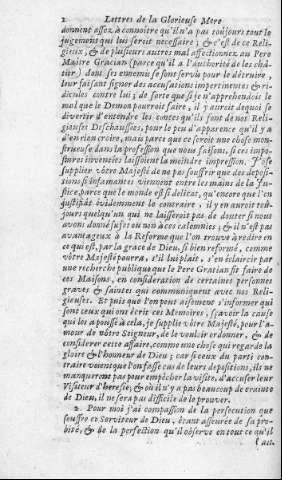 2 Lettres de la Glorieuse Mere
donnent assez à connoître qu'il n'a pas toûjours tout le
jugement qui lui seroit necessaire ; & c'est de ce Reli-
gieux, & de plusieurs autres mal affectionnez au Pere
Maître Gracian (parce qu'il a l'authorité de les châ-
tier) dont ses ennemis se sont servis pour le détruire,
leur faisant signer des accusations impertinentes & ri-
dicules contre lui ; de sorte que si je n'apprehendois le
mal que le Demon pourroit faire, il y auroit dequoi se
divertir d'entendre les contes qu'ils font de nos Reli-
gieuses Déchaussées, pour le peu d'apparence qu'il y a
d'en rien croire, mais parce que ce seroit une chose mons-
trueuse dans la profession que nous faisons, si ces impos-
tures inventées laissoient la moindre impression. J'ose
supplier vôtre Majesté de ne pas souffrir que des deposi-
tions si infamantes viennent entre les mains de la Jus-
tice, parce que le monde est si delicat, qu'encore que l'on
justifiât évidemment le contraire, il y en auroit toû-
jours quelqu'un qui ne laisseroit pas de douter si nous
avons donné sujet ou non à ces calomnies ; & il n'est pas
avantageux à la Reforme que l'on trouve à redire en
ce qui est, par la grace de Dieu, si bien reformé, comme
vôtre Majesté pourra, s'il lui plaît, s'en éclaircir par
une recherche publique que le Pere Gratian fit faire de
ces Maisons, en consideration de certaines personnes
graves & saintes qui communiquent avec nos Reli-
gieuses. Et puis que l'on peut aisément s'informer qui
sont ceux qui ont écrit ces Memoires, sçavoir la cause
qui les a poussé à cela, je supplie vôtre Majesté, pour l'a-
mour de nôtre Seigneur, de le vouloir ordonner, & de
considerer cette affaire, comme une chose qui regarde la
gloire & l'honneur de Dieu ; car si ceux du parti con-
traire voient que l'on fasse cas de leurs depositions, ils ne
manqueront pas pour empêcher la visite, d'accuser leur
Visiteur d'heresie, & où il n'y a pas beaucoup de crainte
de Dieu, il ne sera pas difficile de le prouver.
2. Pour moi j'ai compassion de la persecution que
souffre ce Serviteur de Dieu, étant asseurée de sa pro-
bité, & de la perfection qu'il observe en tout ce qu'il